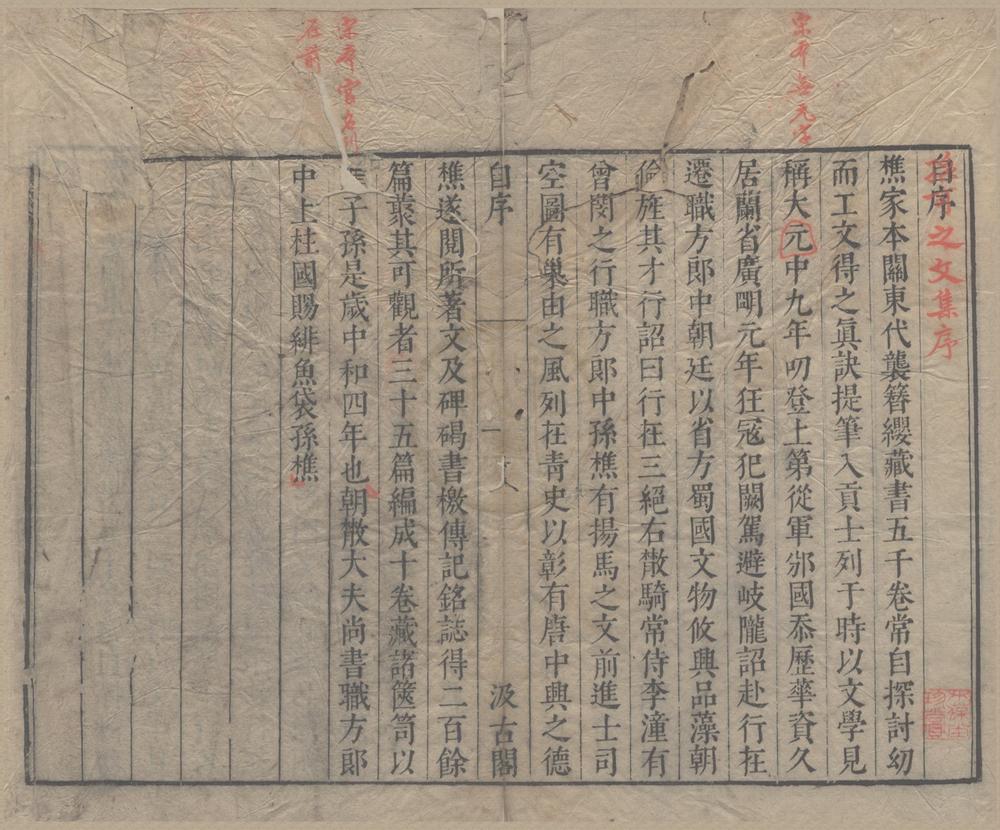 宋本無元字
自序
之文集序
樵家本關東代襲簪纓藏書五千卷常自探討㓜
而工文得之眞訣提筆入貢士列于時以文學見
稱大元中九年叨登上第從軍邠國忝歷華資久
居蘭省廣明元年狂冦犯闕駕避岐隴詔赴行在
遷職方郎中朝廷以省方蜀國文物攸興品藻朝
倫旌其才行詔曰行在三絕右散騎常侍李潼有
曾閔之行職方郎中孫樵有揚馬之文前進士司
空圖有巢由之風列在青史以彰有唐中興之德
自序
一
汲古閣
樵遂閱所著文及碑碣書檄傳記銘誌得二百餘
篇叢其可觀者三十五篇編成十卷藏諸篋笥以
子孫是歲中和四年也朝散大夫尚書職方郎
中上柱國賜緋魚袋孫樵
宋本官名
在前